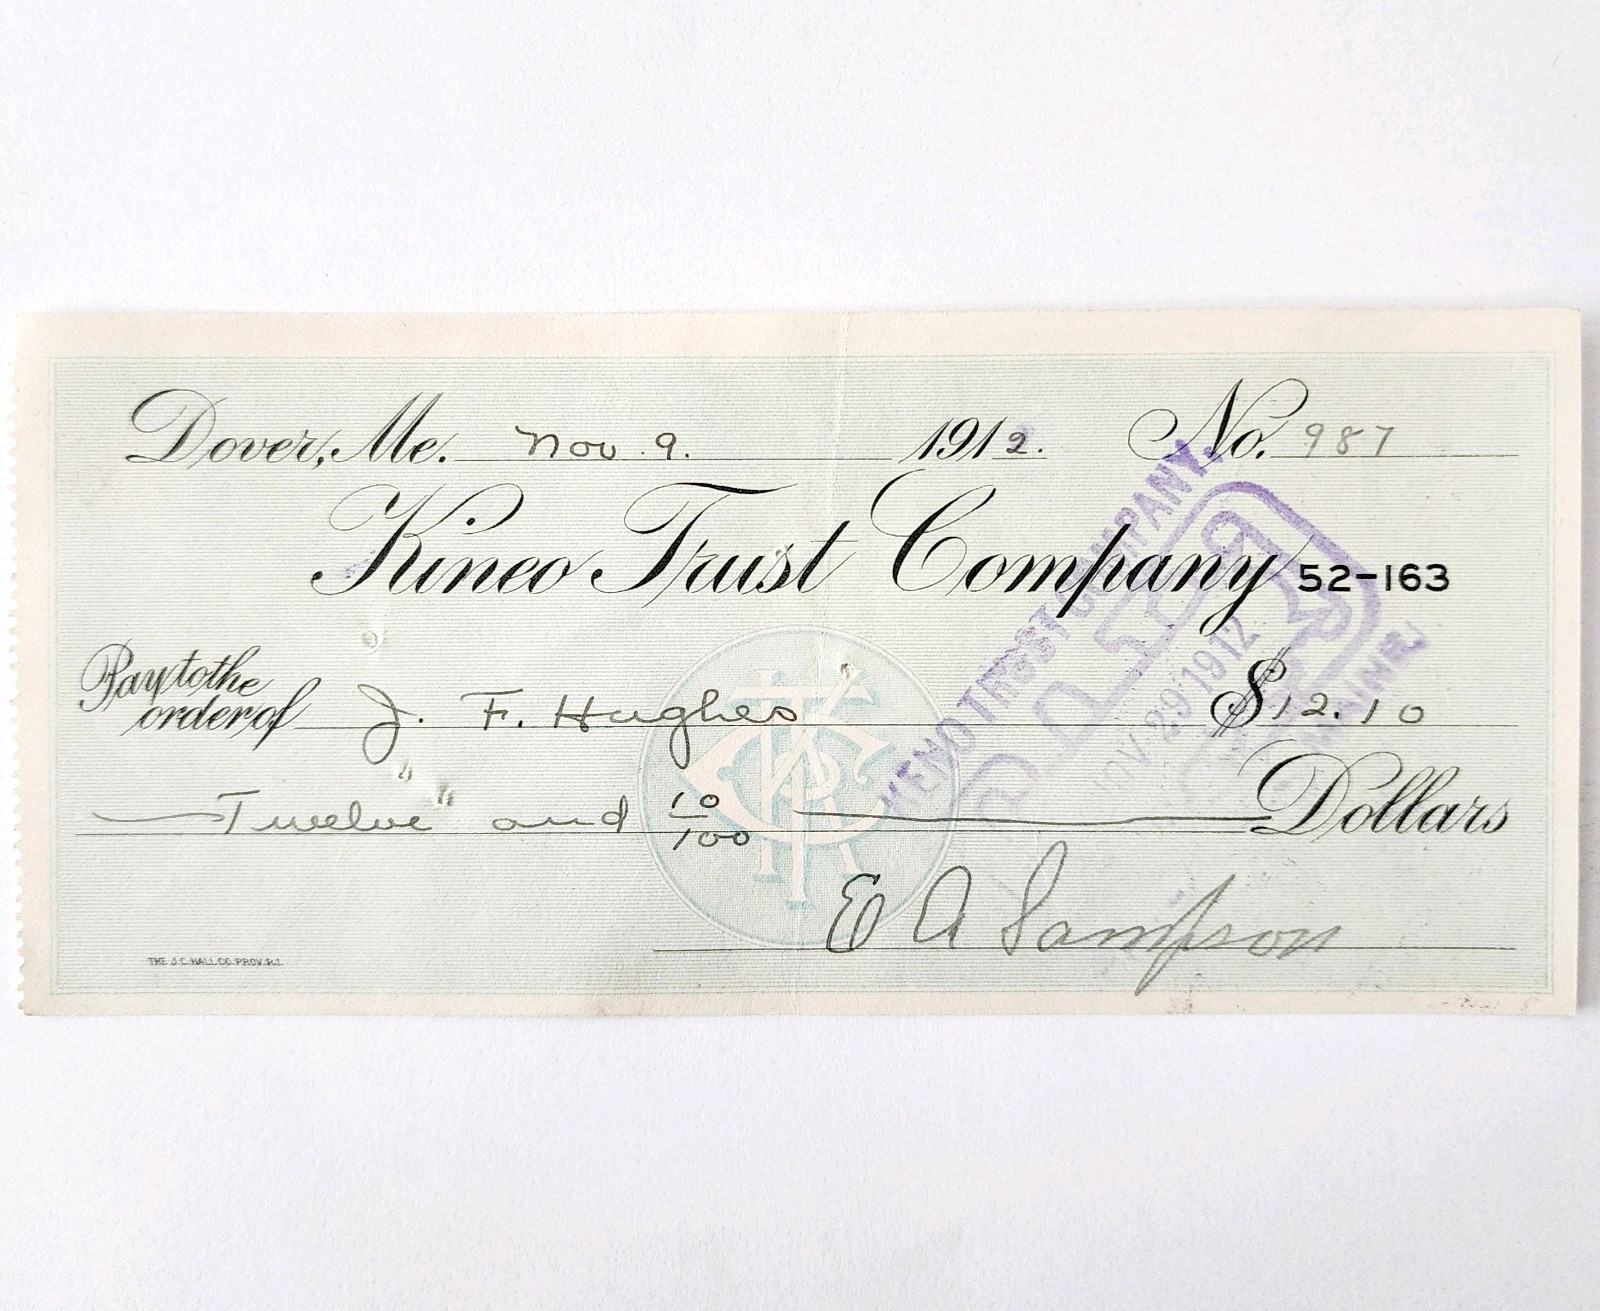 Dover, Me. Nov. 9. 1912. No. 987
Kineo Trust Company 52-163
Pay to the
order of J. F. Hughes $12.10
Twelve and 10/100 Dollars
E A Sampson
THE J.C. HALL CO. PROV. R.I.
KINEO TRUST COMPANY.
PAID
NOV 29 1912